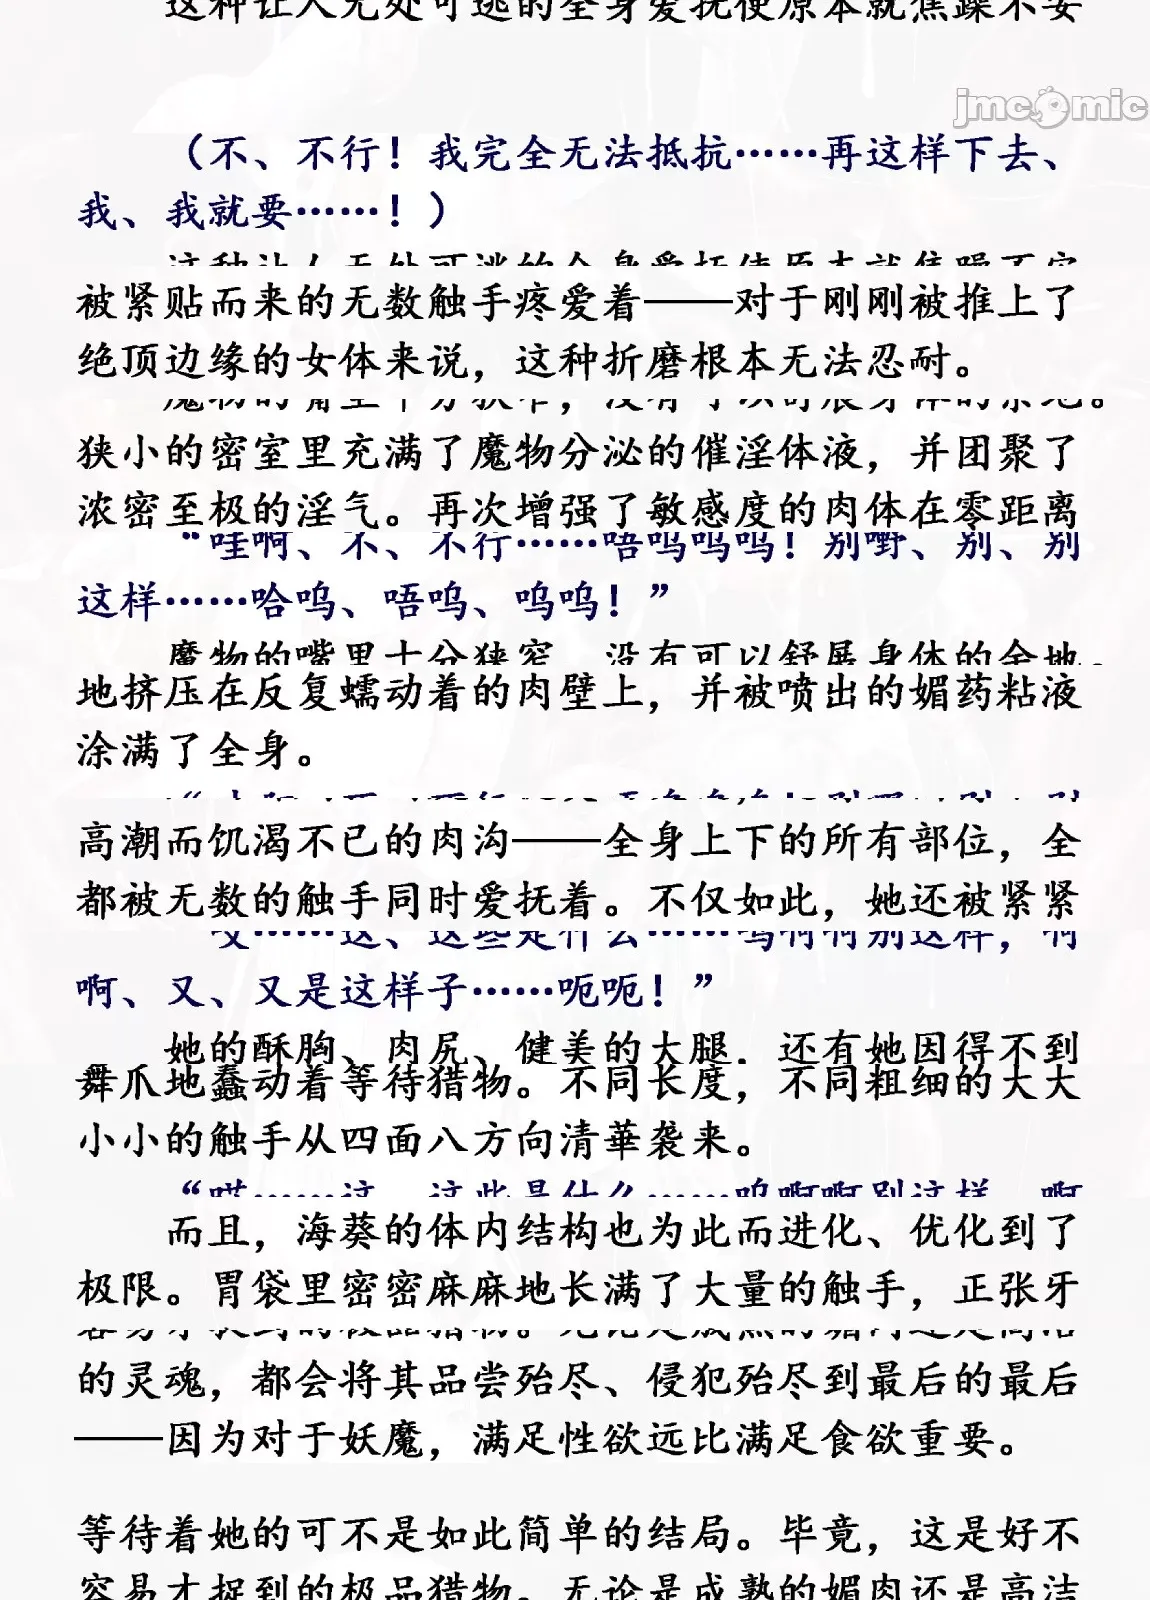 这种让人无处可逃的全身爱抚使原本就焦躁不安
jmcomic
（不、不行！我完全无法抵抗……再这样下去、
我、我就要……！）
这种让人无处可逃的全身爱抚使原本就焦躁不安
被紧贴而来的无数触手疼爱着——对于刚刚被推上了
绝顶边缘的女体来说，这种折磨根本无法忍耐。
魔物的嘴里十分狭窄，没有可以舒展身体的余地。
狭小的密室里充满了魔物分泌的催淫体液，并团聚了
浓密至极的淫气。再次增强了敏感度的肉体在零距离
“哇啊、不、不行……唔呜呜呜！别嘢、别、别
这样……哈呜、唔呜、呜呜！”
魔物的嘴里十分狭窄，没有可以舒展身体的余地。
地挤压在反复蠕动着的肉壁上，并被喷出的媚药粘液
涂满了全身。
高潮而饥渴不已的肉沟——全身上下的所有部位，全
都被无数的触手同时爱抚着。不仅如此，她还被紧紧
这、这些是什么……呜啊啊别这样，啊
啊、又、又是这样子……呃呃！”
她的酥胸、肉尻、健美的大腿．还有她因得不到
舞爪地蠢动着等待猎物。不同长度，不同粗细的大大
小小的触手从四面八方向清華袭来。
“哎……这、这些是什么……呜啊啊别这样，啊
而且，海葵的体内结构也为此而进化、优化到了
极限。胃袋里密密麻麻地长满了大量的触手，正张牙
容易才捉到的极品猎物。无论是成熟的媚肉还是高洁
的灵魂，都会将其品尝殆尽、侵犯殆尽到最后的最后
——因为对于妖魔，满足性欲远比满足食欲重要。
等待着她的可不是如此简单的结局。毕竟，这是好不
容易才捉到的极品猎物。无论是成熟的媚肉还是高洁